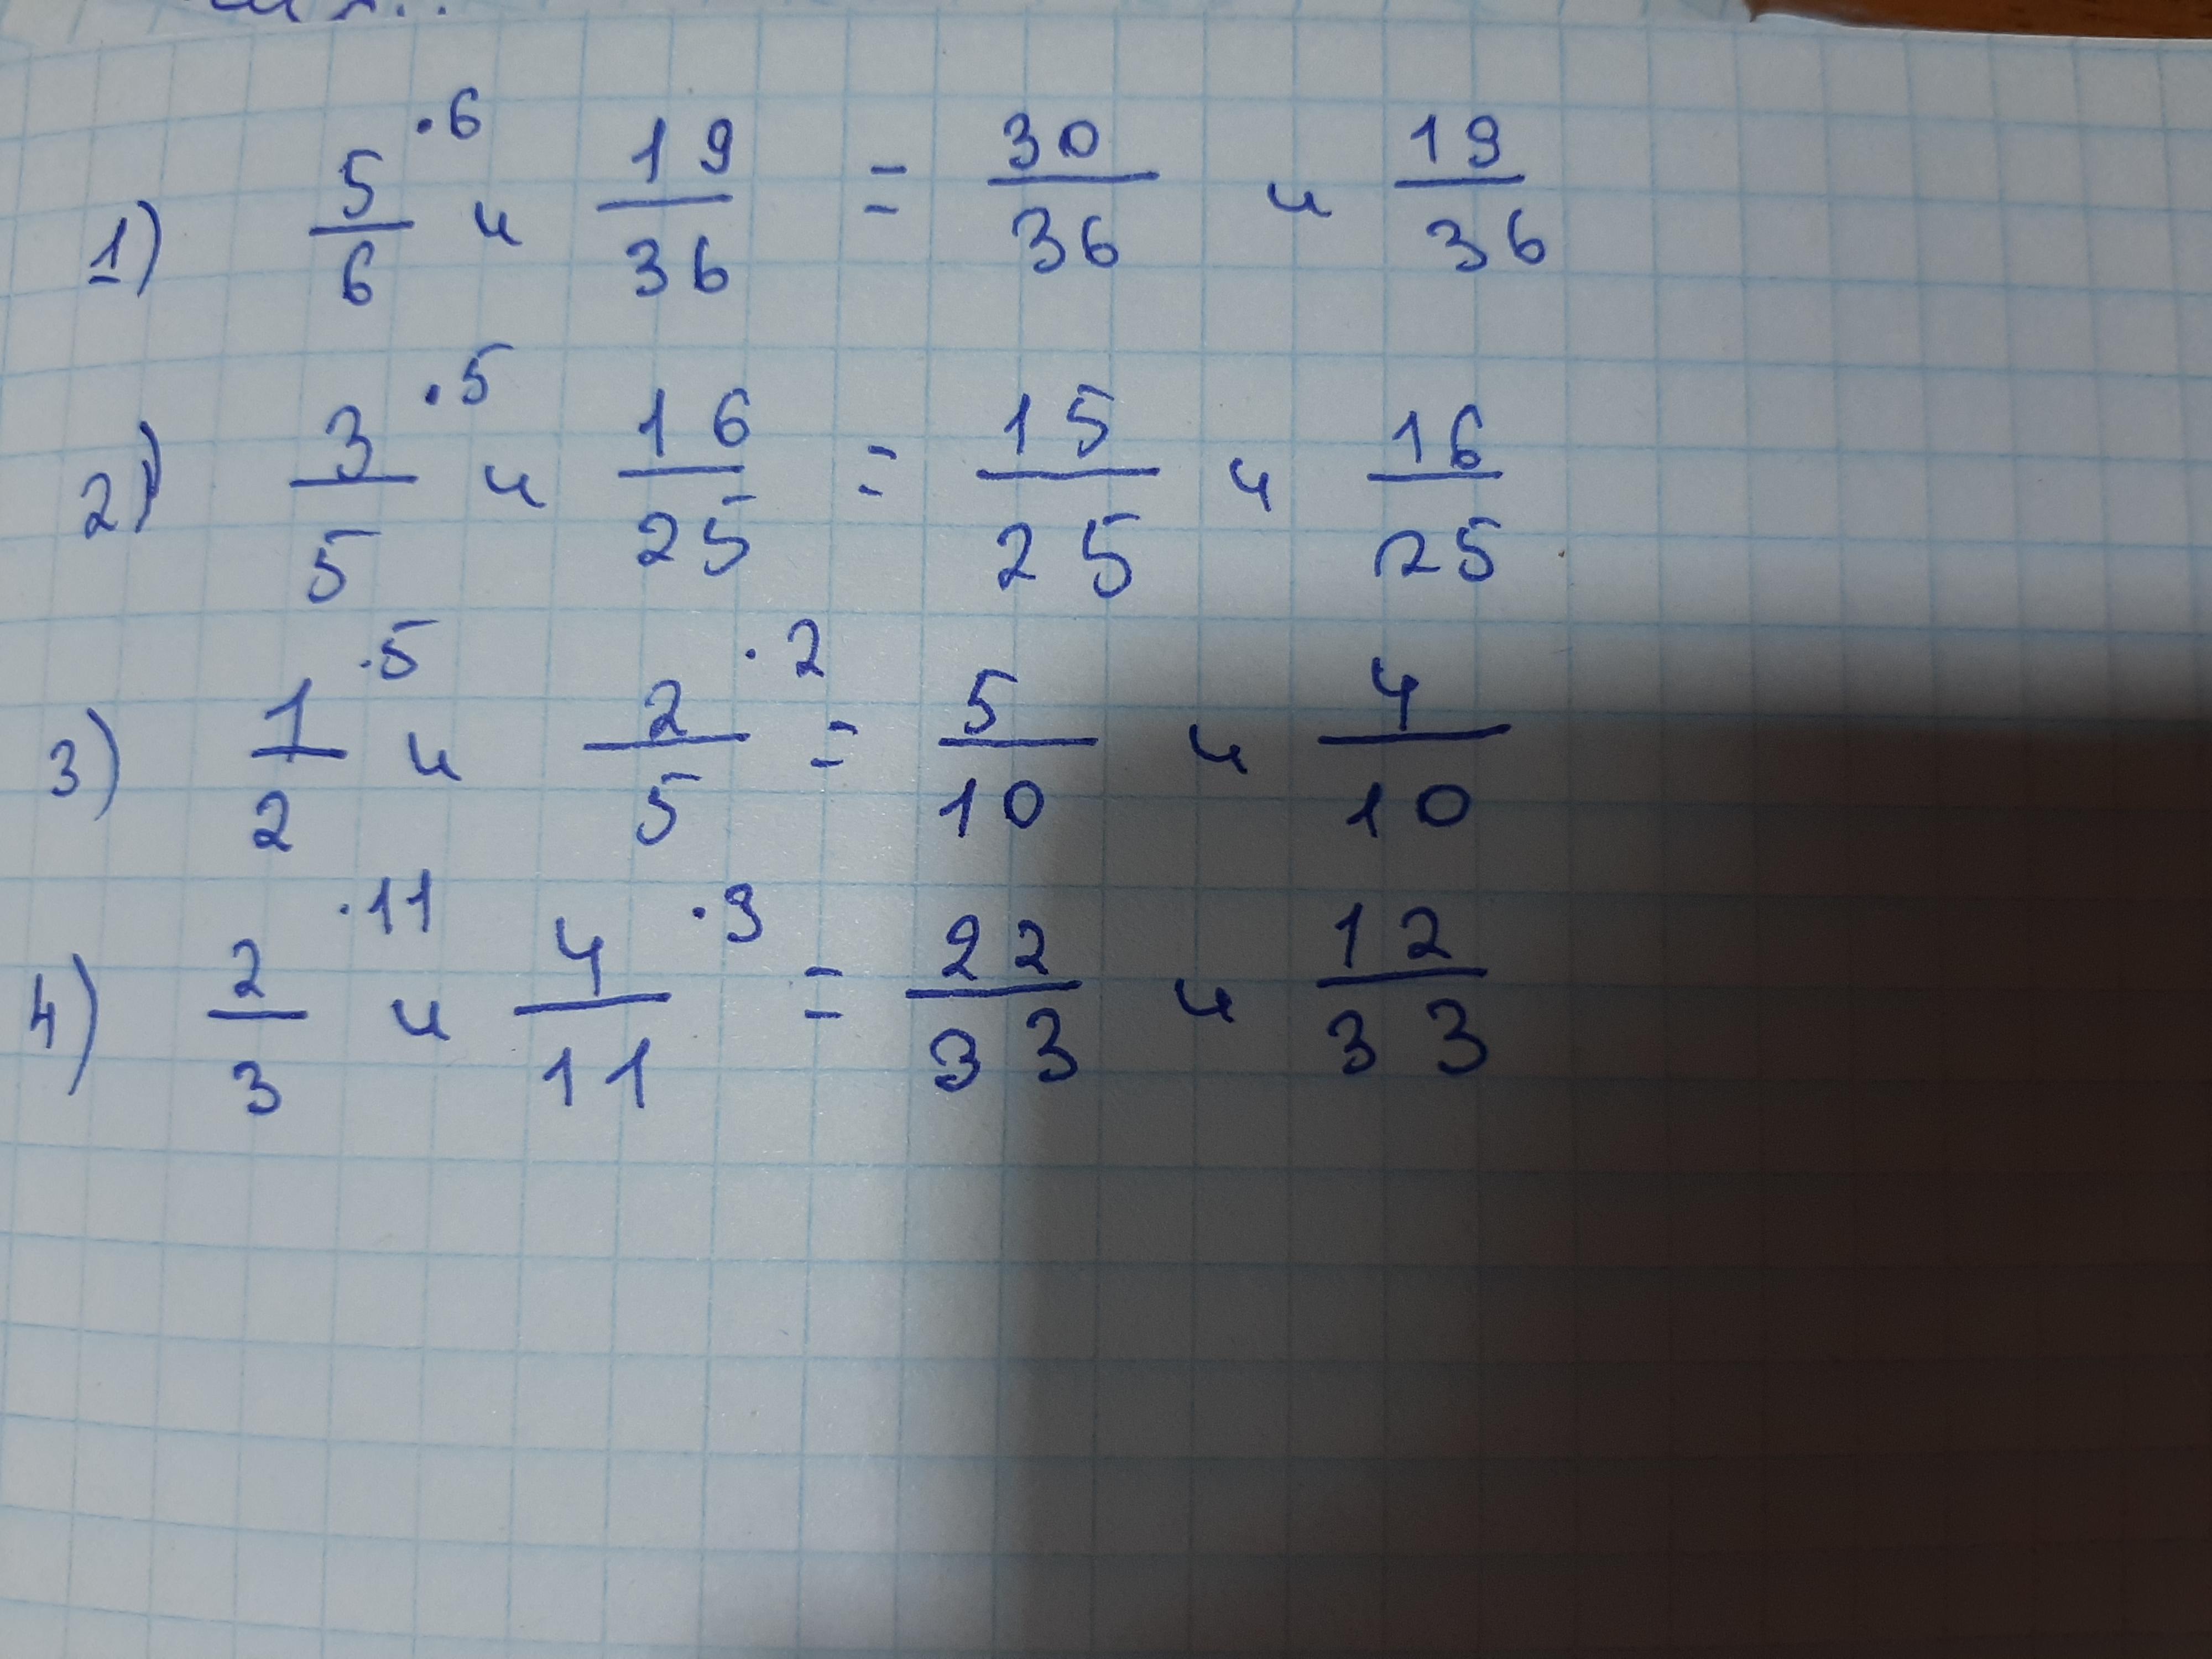 1) 5/6 ·6 и 19/36 = 30/36 и 19/36
2) 3/5 ·5 и 16/25 = 15/25 и 16/25
3) 1/2 ·5 и 2/5 ·2 = 5/10 и 4/10
4) 2/3 ·11 и 4/11 ·3 = 22/33 и 12/33